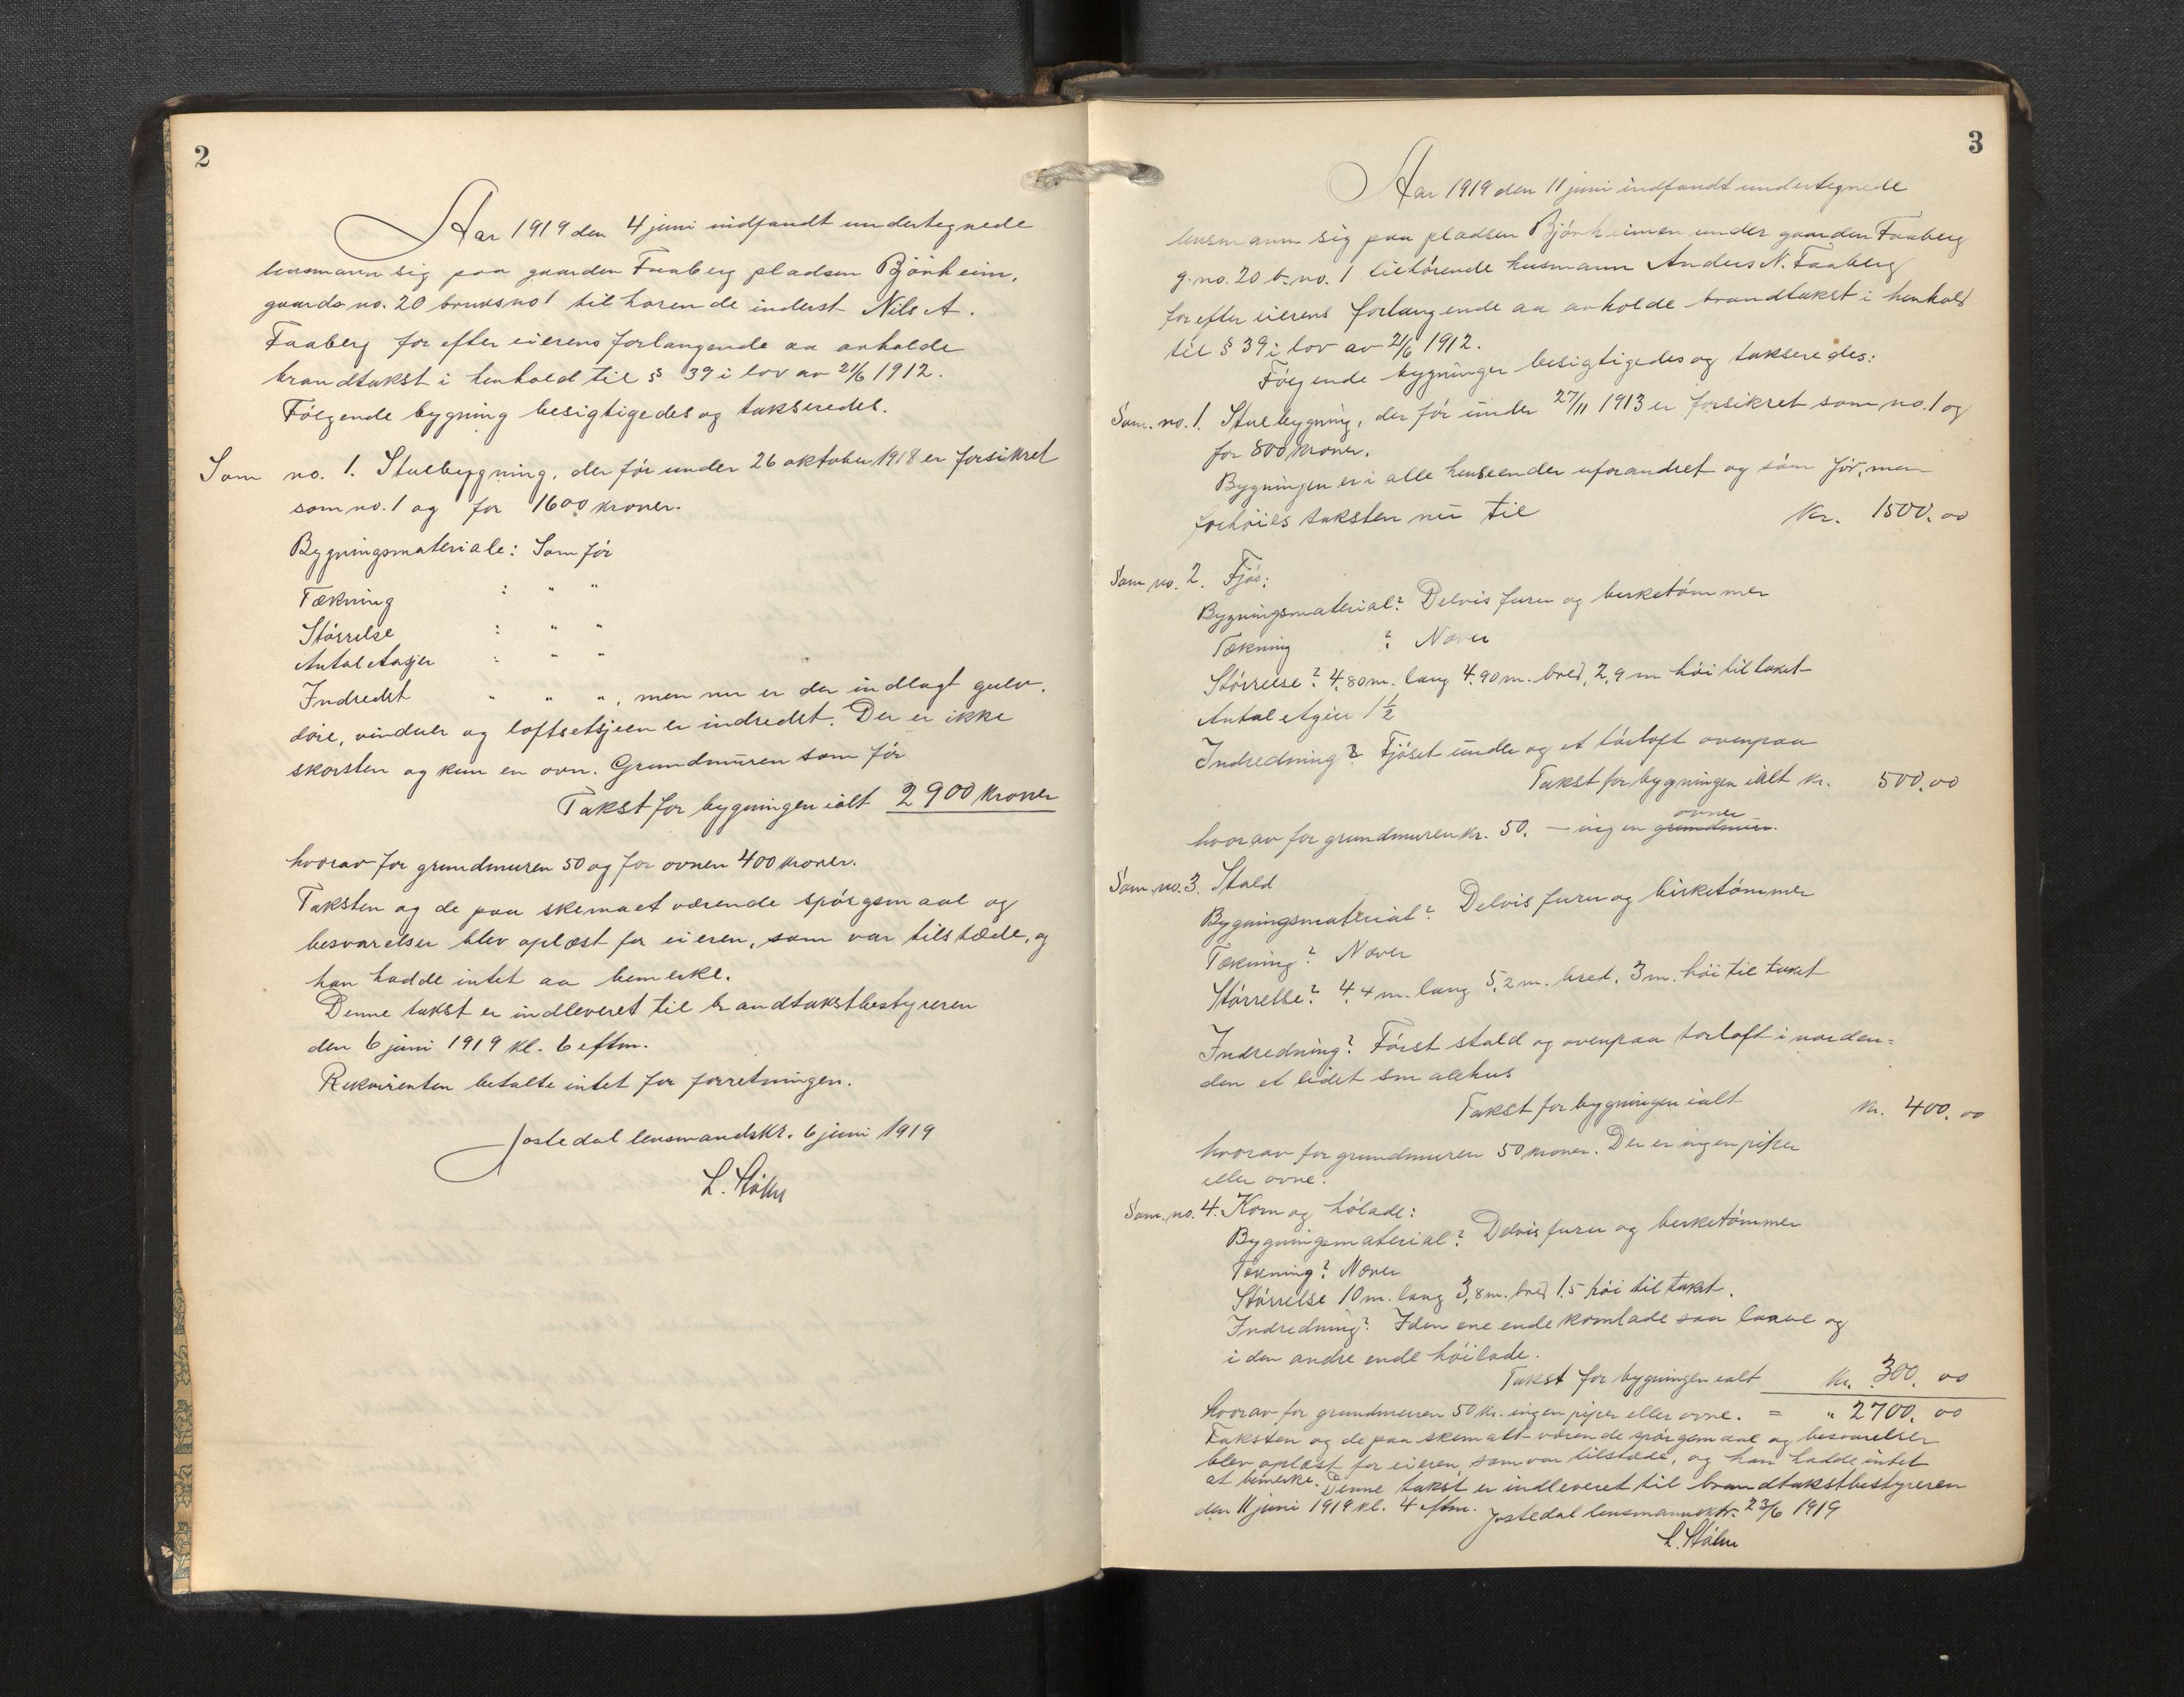 2
Aar 1919 den 4 juni indfandt undertegnede
lensmann sig paa gaarden Faaberg pladsen Bjönheim,
gaards no. 20 bruks no 1 tilhörende inderst Nils A.
Faaberg for efter eierens forlangende aa avholde
brandtakst i henhold til § 39 i lov av 21/6 1912.
Fölgende bygning besigtigedes og takseredes.
Som no. 1. Stuebygning, der för under 26 oktober 1918 er forsikret
som no. 1 og for 1600 kroner.
Bygningsmateriale: Som för
Tækning : " "
Störrelse : " "
Antal etasjer : " "
Indredet " " ", men nu er der indlagt gulv,
döre, vinduer og loftsetsjeen er indredet. Der er ikke
skorsten og kun en ovn. Grundmuren som för
Takst for bygningen ialt 2900 kroner
hvorav for grundmuren 50 og for ovnen 400 kroner.
Taksten og de paa skemaet værende spörgsmaal og
besvarelser blev oplæst for eieren, som var tilstæde, og
han hadde intet aa bemerke.
Denne takst er indleveret til brandtakstbestyreren
den 6 juni 1919 kl. 6 eftm.
Rekvirenten betalte intet for forretningen.
Jostedal lensmandskt. 6 juni 1919
L. Stölen
3
Aar 1919 den 11 juni indfandt undertegnede
lensmann sig paa pladsen Bjönheimen under gaarden Faaberg
g. no. 20 b. no. 1 tilhörende husmann Anders N. Faaberg
for efter eierens forlangende aa avholde brandtakst i henhold
til § 39 i lov av 21/6 1912.
Fölgende bygninger besigtigedes og takseredes:
Som no. 1. Stuebygning, der för under 27/11 1913 er forsikret som no. 1 og
for 800 kroner.
Bygningen er i alle henseender uforandret og som för, men
forhöies taksten nu til Kr. 1500.00
Som no. 2. Fjös:
Bygningsmaterial? Delvis furu og birketömmer
Tækning ? Næver
Störrelse? 4,80 m. lang 4,90 m. bred, 2,9 m höi til taket
Antal etgier 1 1/2
Indredning? Fjöset under og et törloft ovenpaa
Takst for bygningen ialt kr. 500.00
hvorav for grundmuren kr. 50. — ingen grundmur. ovner
Som no. 3. Stald
Bygningsmaterial? Delvis furu og birketömmer
Tækning? Næver
Störrelse? 4,4 m. lang 5,2 m. bred, 3 m. höi til taket
Indredning? Först stald og ovenpaa torloft i norden=
den et lidet smalehus
Takst for bygningen ialt Kr. 400.00
hvorav for grundmuren 50 kroner. Der er ingen piper
eller ovne.
Som no. 4. Korn og hölade:
Bygningsmaterial? Delvis furu og birketömmer
Tækning? Næver
Störrelse 10 m. lang 3,8 m. bred 1.5 höi til taket.
Indredning? I den ene ende kornlade saa laave og
i den andre ende höilade.
Takst for bygningen ialt Kr. 300.00
hvorav for grundmuren 50 kr. ingen piper eller ovne. = " 2700.00
Taksten og de paa skemaet værende spörgsmaal og besvarelser
blev oplæst for eieren, som var tilstæde, og han hadde intet
at bemerke. Denne takst er indleveret til brandtakstbestyreren
den 11 juni 1919 kl. 4 eftm. Jostedal lensmannsktr. 23/6 1919
L. Stölen